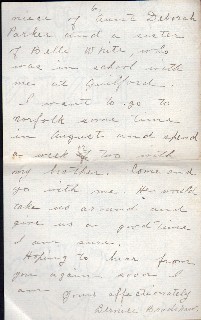 6.
niece of Aunt Deborah
Parker and a sister
of Belle White, who
was in school with
me at Guilford.
I want to go to
Norfolk some time
in August and spend
a week or two with
my brother. Come and
go with me. He would
take us around and
give us a good time
I am sure.
Hoping to hear from
you again soon I
am yours affectionately
Bernice Bradshaw.